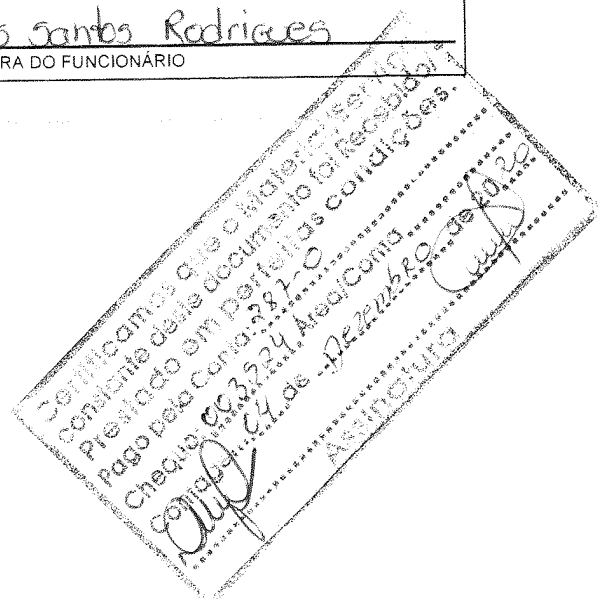 s santos Rodrigues
RA DO FUNCIONÁRIO
Certificamos que o Material/Serviço
constante deste documento foi Recebido/
Prestado em perfeitas condições.
Pago pela Conta: 287-0
Cheque: 003.924 Área/Coma
Contage 04 de Dezembro de 2020
Assinatura